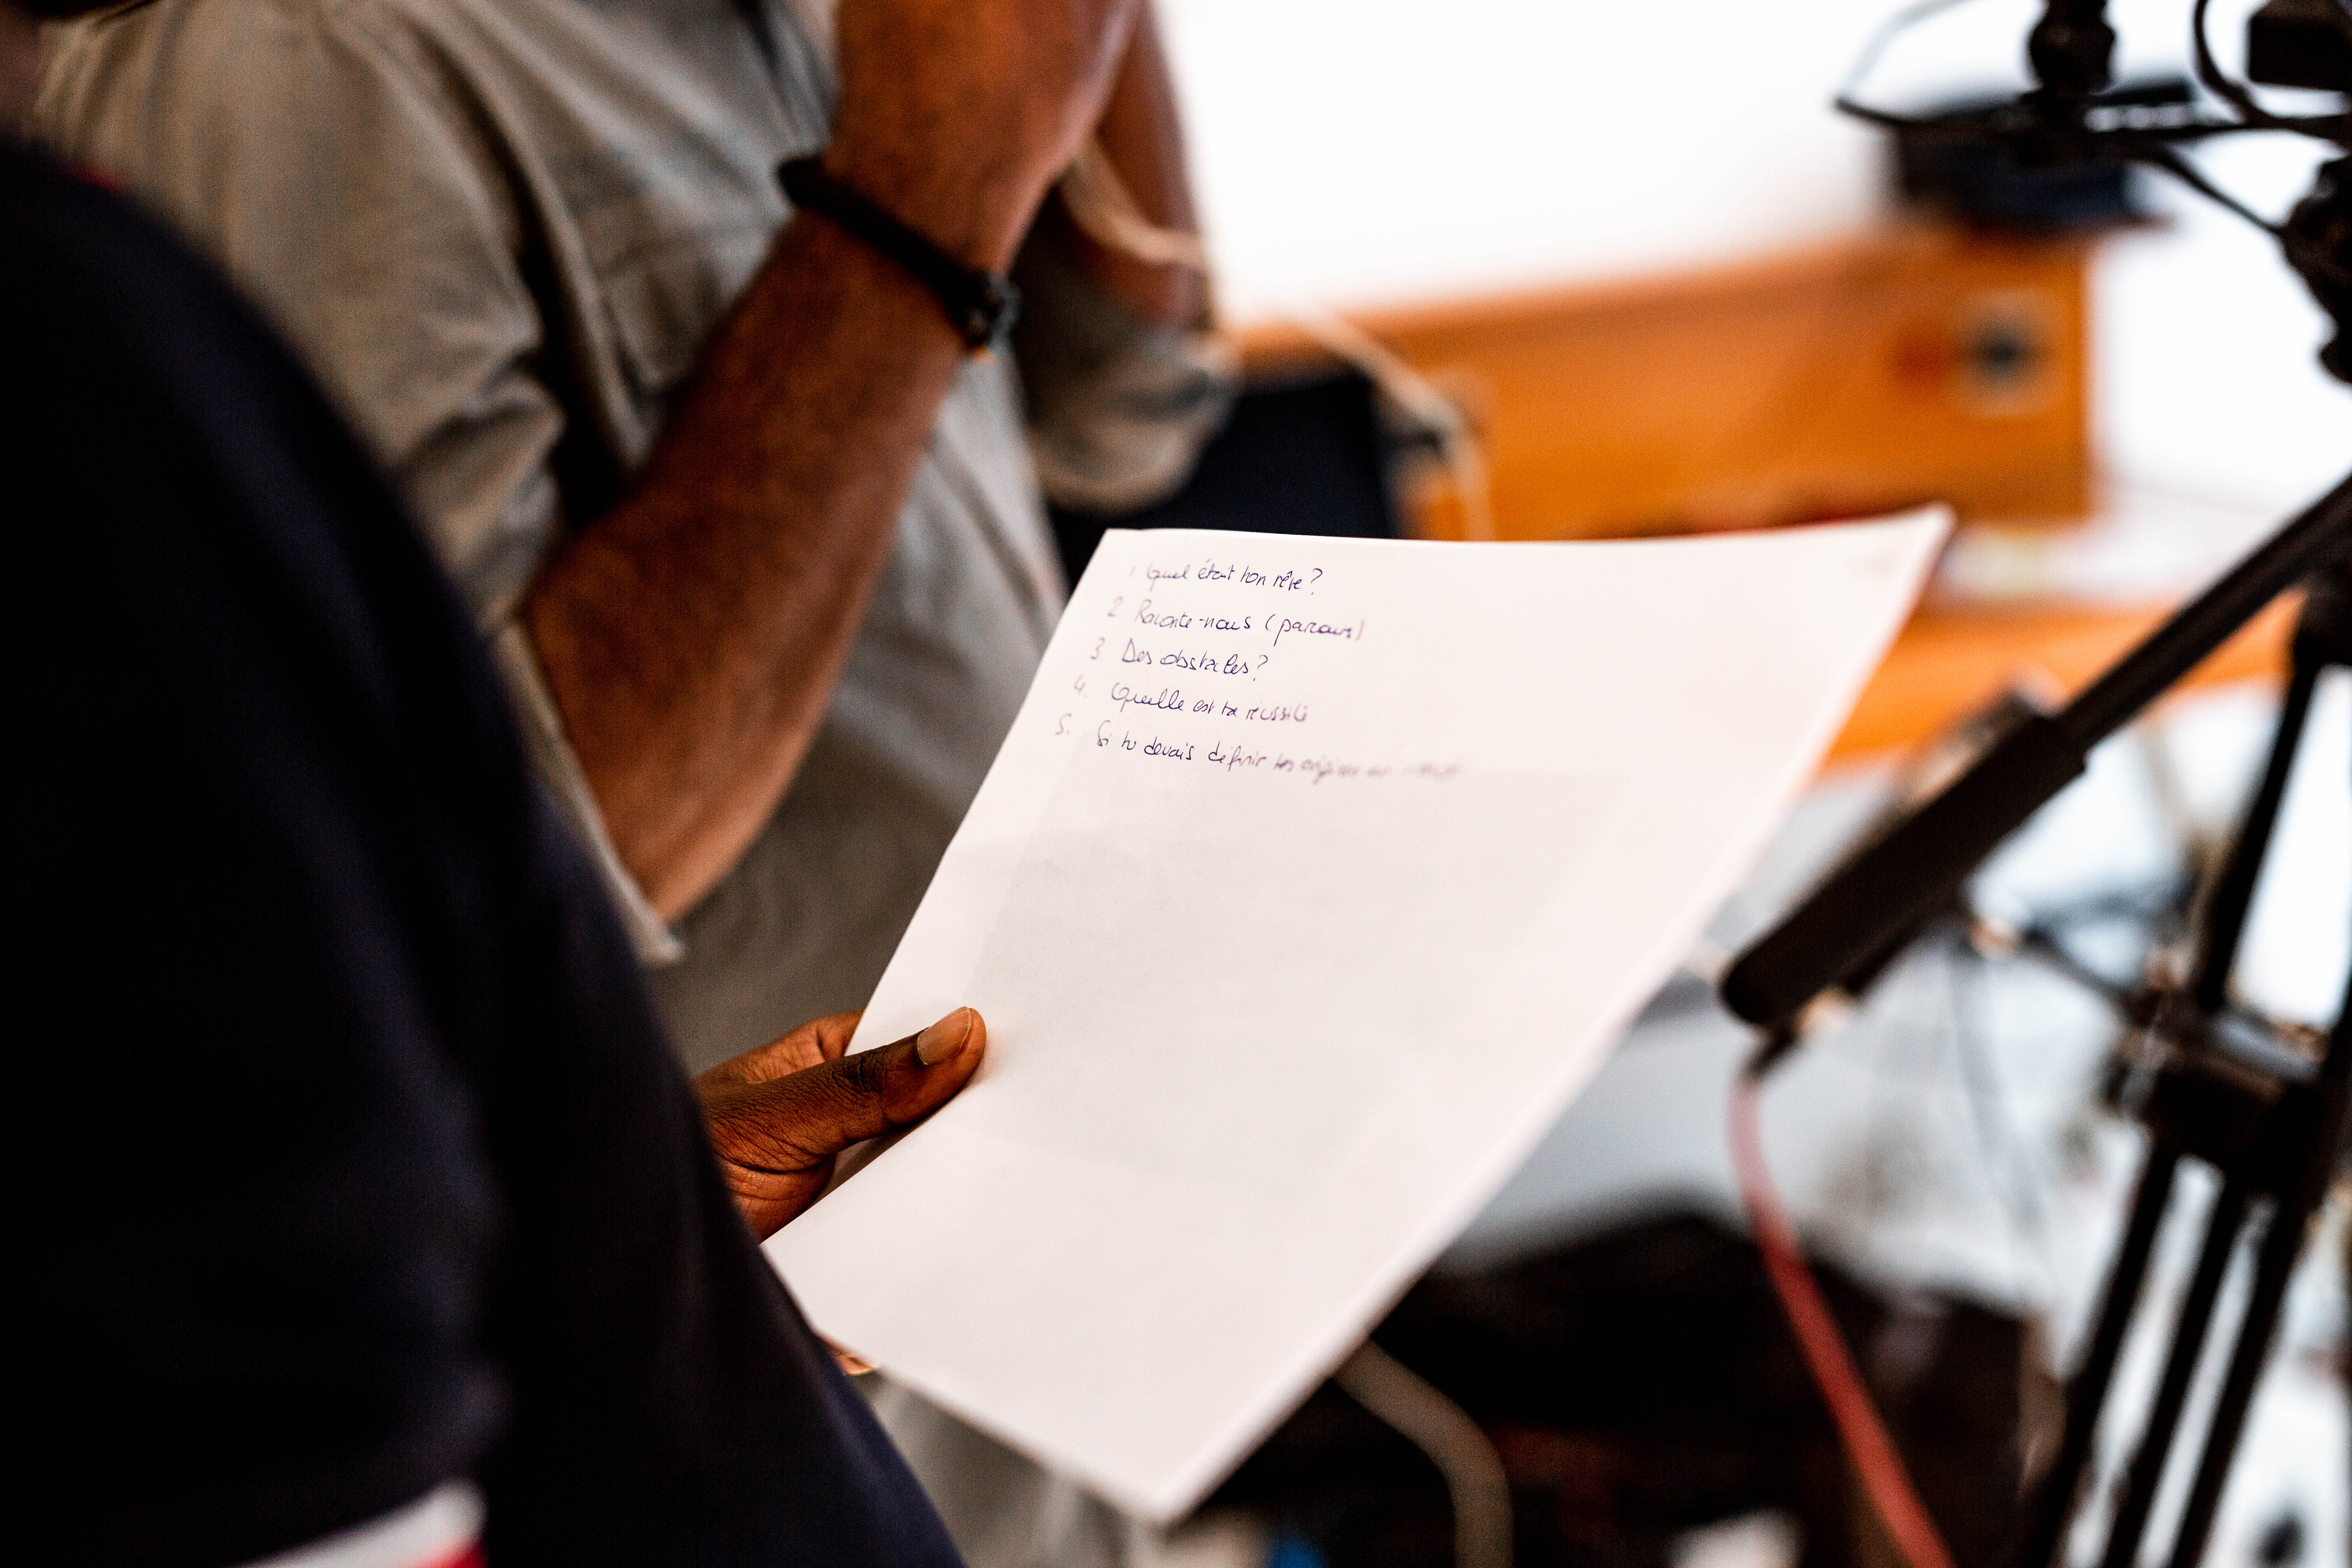 1 Quel était ton rêve ?
2. Raconte-nous (parcours)
3. Des obstacles ?
4. Quelle est ta réussite
5. Si tu devais définir tes origines en